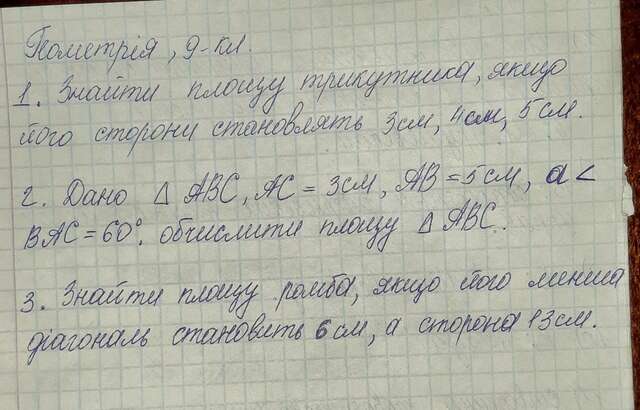 Геометрія, 9-кл.
1. Знайти площу трикутника, якщо
його сторони становлять 3см, 4см, 5см.
2. Дано △ ABC, AC = 3см, AB = 5см, а <
BAC = 60°. обчислити площу △ ABC.
3. Знайти площу ромба, якщо його менша
діагональ становить 6см, а сторона 13см.